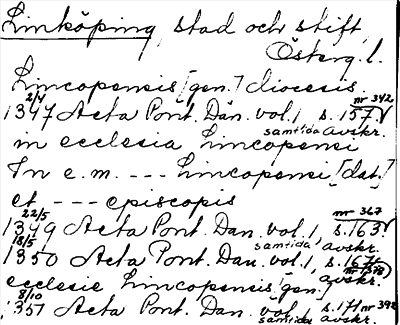 Linköping, stad och stift,
Österg. l.
Lincopensis [gen.] diocesis
2/4 nr 342
1347 Acta Pont. Dan. vol. 1, s. 157,
samtida avskr.
in ecclesia Lincopensi
In e.m. --- Lincopensi [dat.]
et --- episcopis
22/5 nr 367
1349 Acta Pont. Dan. vol. 1, s. 163.
samtida avskr.
18/5
1350 Acta Pont. Dan. vol. 1, s. 167,
nr 378
avskr.
ecclesie Lincopensis [gen.]
8/10
1351 Acta Pont. Dan. vol. 1, s. 171 nr 392
samtida avskr.